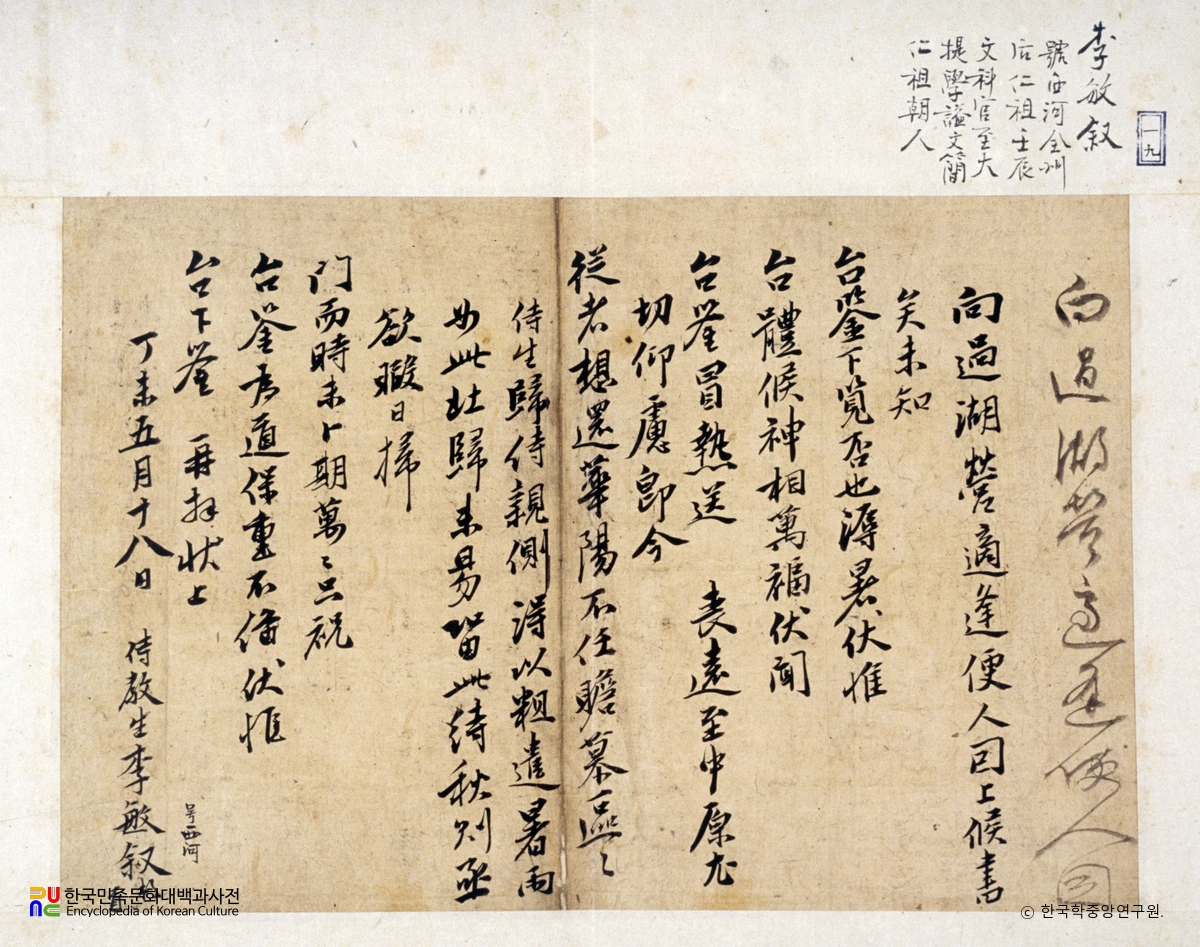 一九
李敏叙
號西河全州
后仁祖壬辰
文科官至大
提學諡文簡
仁祖朝人
向過湖營適逢便人回
向過湖營適逢便人回上候書
矣未知
台鑒下覽否也溽暑伏惟
台體候神相萬福伏聞
台崔冒熱送 喪遠至中原尤
切仰慮卽今
從者想還華陽不任瞻慕區〻
侍生歸侍親側得以粗遣暑雨
如此北歸未易留此待秋則亟
欲暇日掃
门而時未卜期萬〻只祝
台鉴爲道保重不備伏惟
台下鉴 再拜狀上
丁未五月十八日 侍教生李敏叙
号西河
한국민족문화대백과사전
Encyclopedia of Korean Culture
© 한국학중앙연구원.